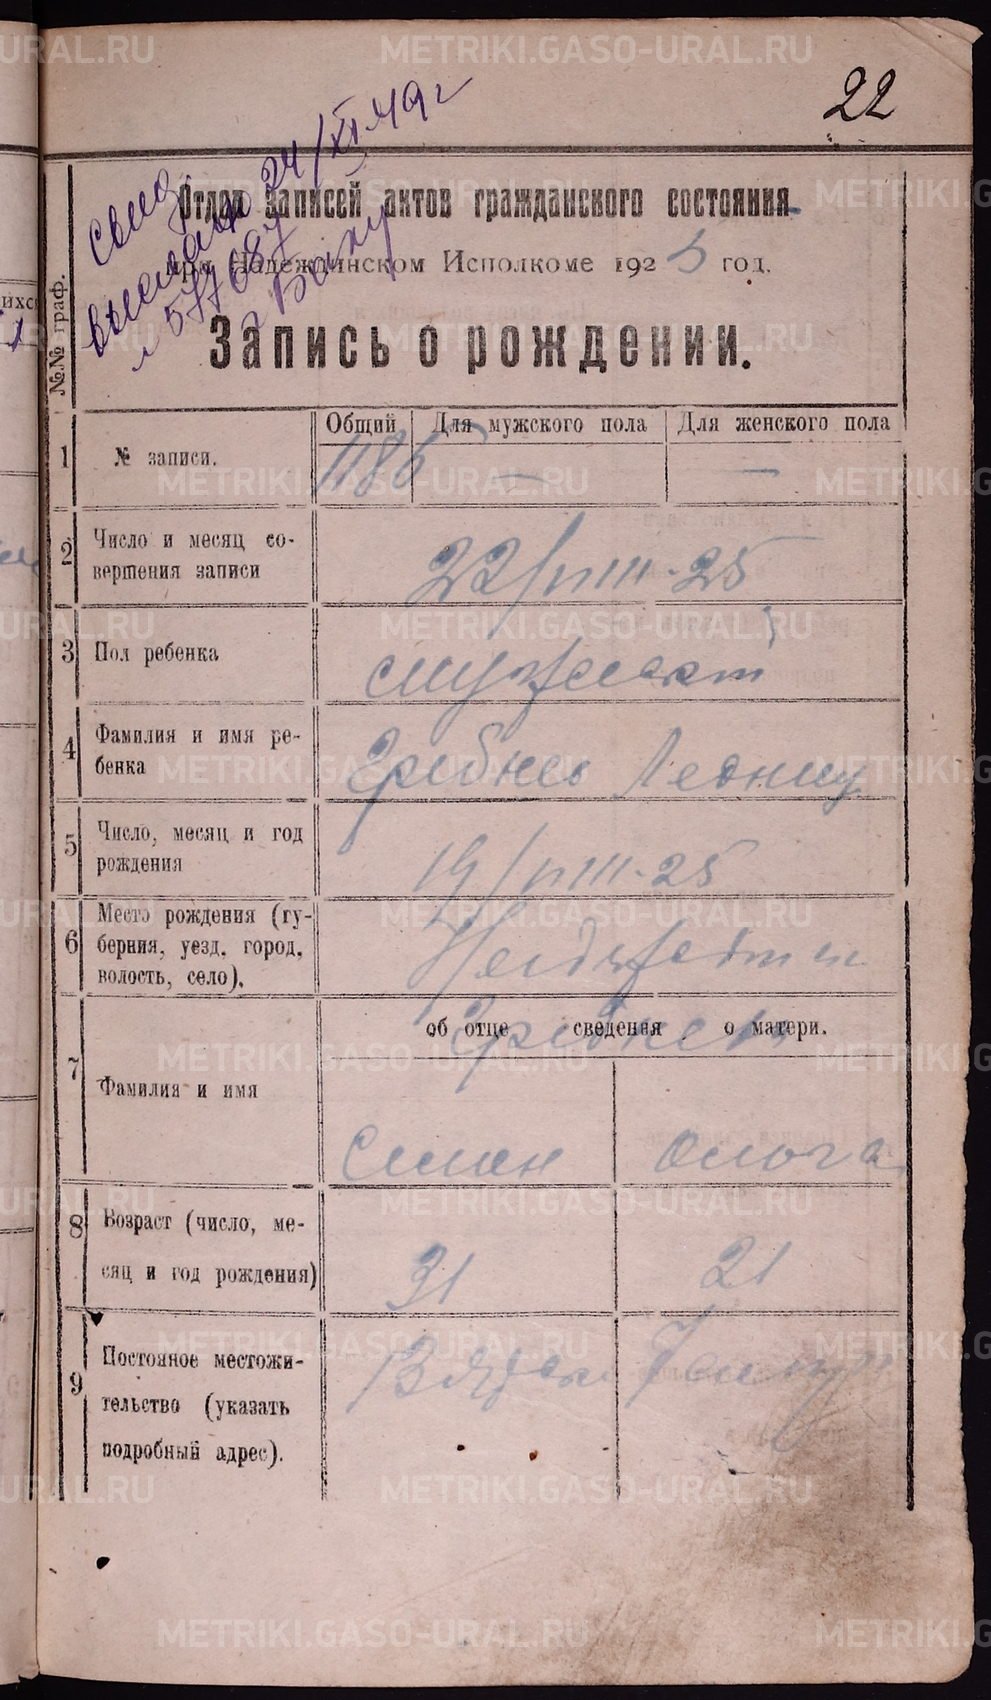 22
выслано 24/XI 49 г
577687
г Баку
Отдел записей актов гражданского состояния
при Надеждинском Исполкоме 1925 год.
Запись о рождении.
№№ граф.
Общий Для мужского пола Для женского пола
1 № записи. 1186 — —
2 Число и месяц со-
вершения записи 22/VIII-25
3 Пол ребенка мужской
4 Фамилия и имя ре-
бенка Гребнев Леонид
5 Число, месяц и год
рождения 19/VIII-25
6 Место рождения (гу-
берния, уезд, город,
волость, село).
об отце сведения о матери.
7 Фамилия и имя
Семен Ольга
8 Возраст (число, ме-
сяц и год рождения) 31 21
9 Постоянное местожи-
тельство (указать
подробный адрес).
METRIKI.GASO-URAL.RU